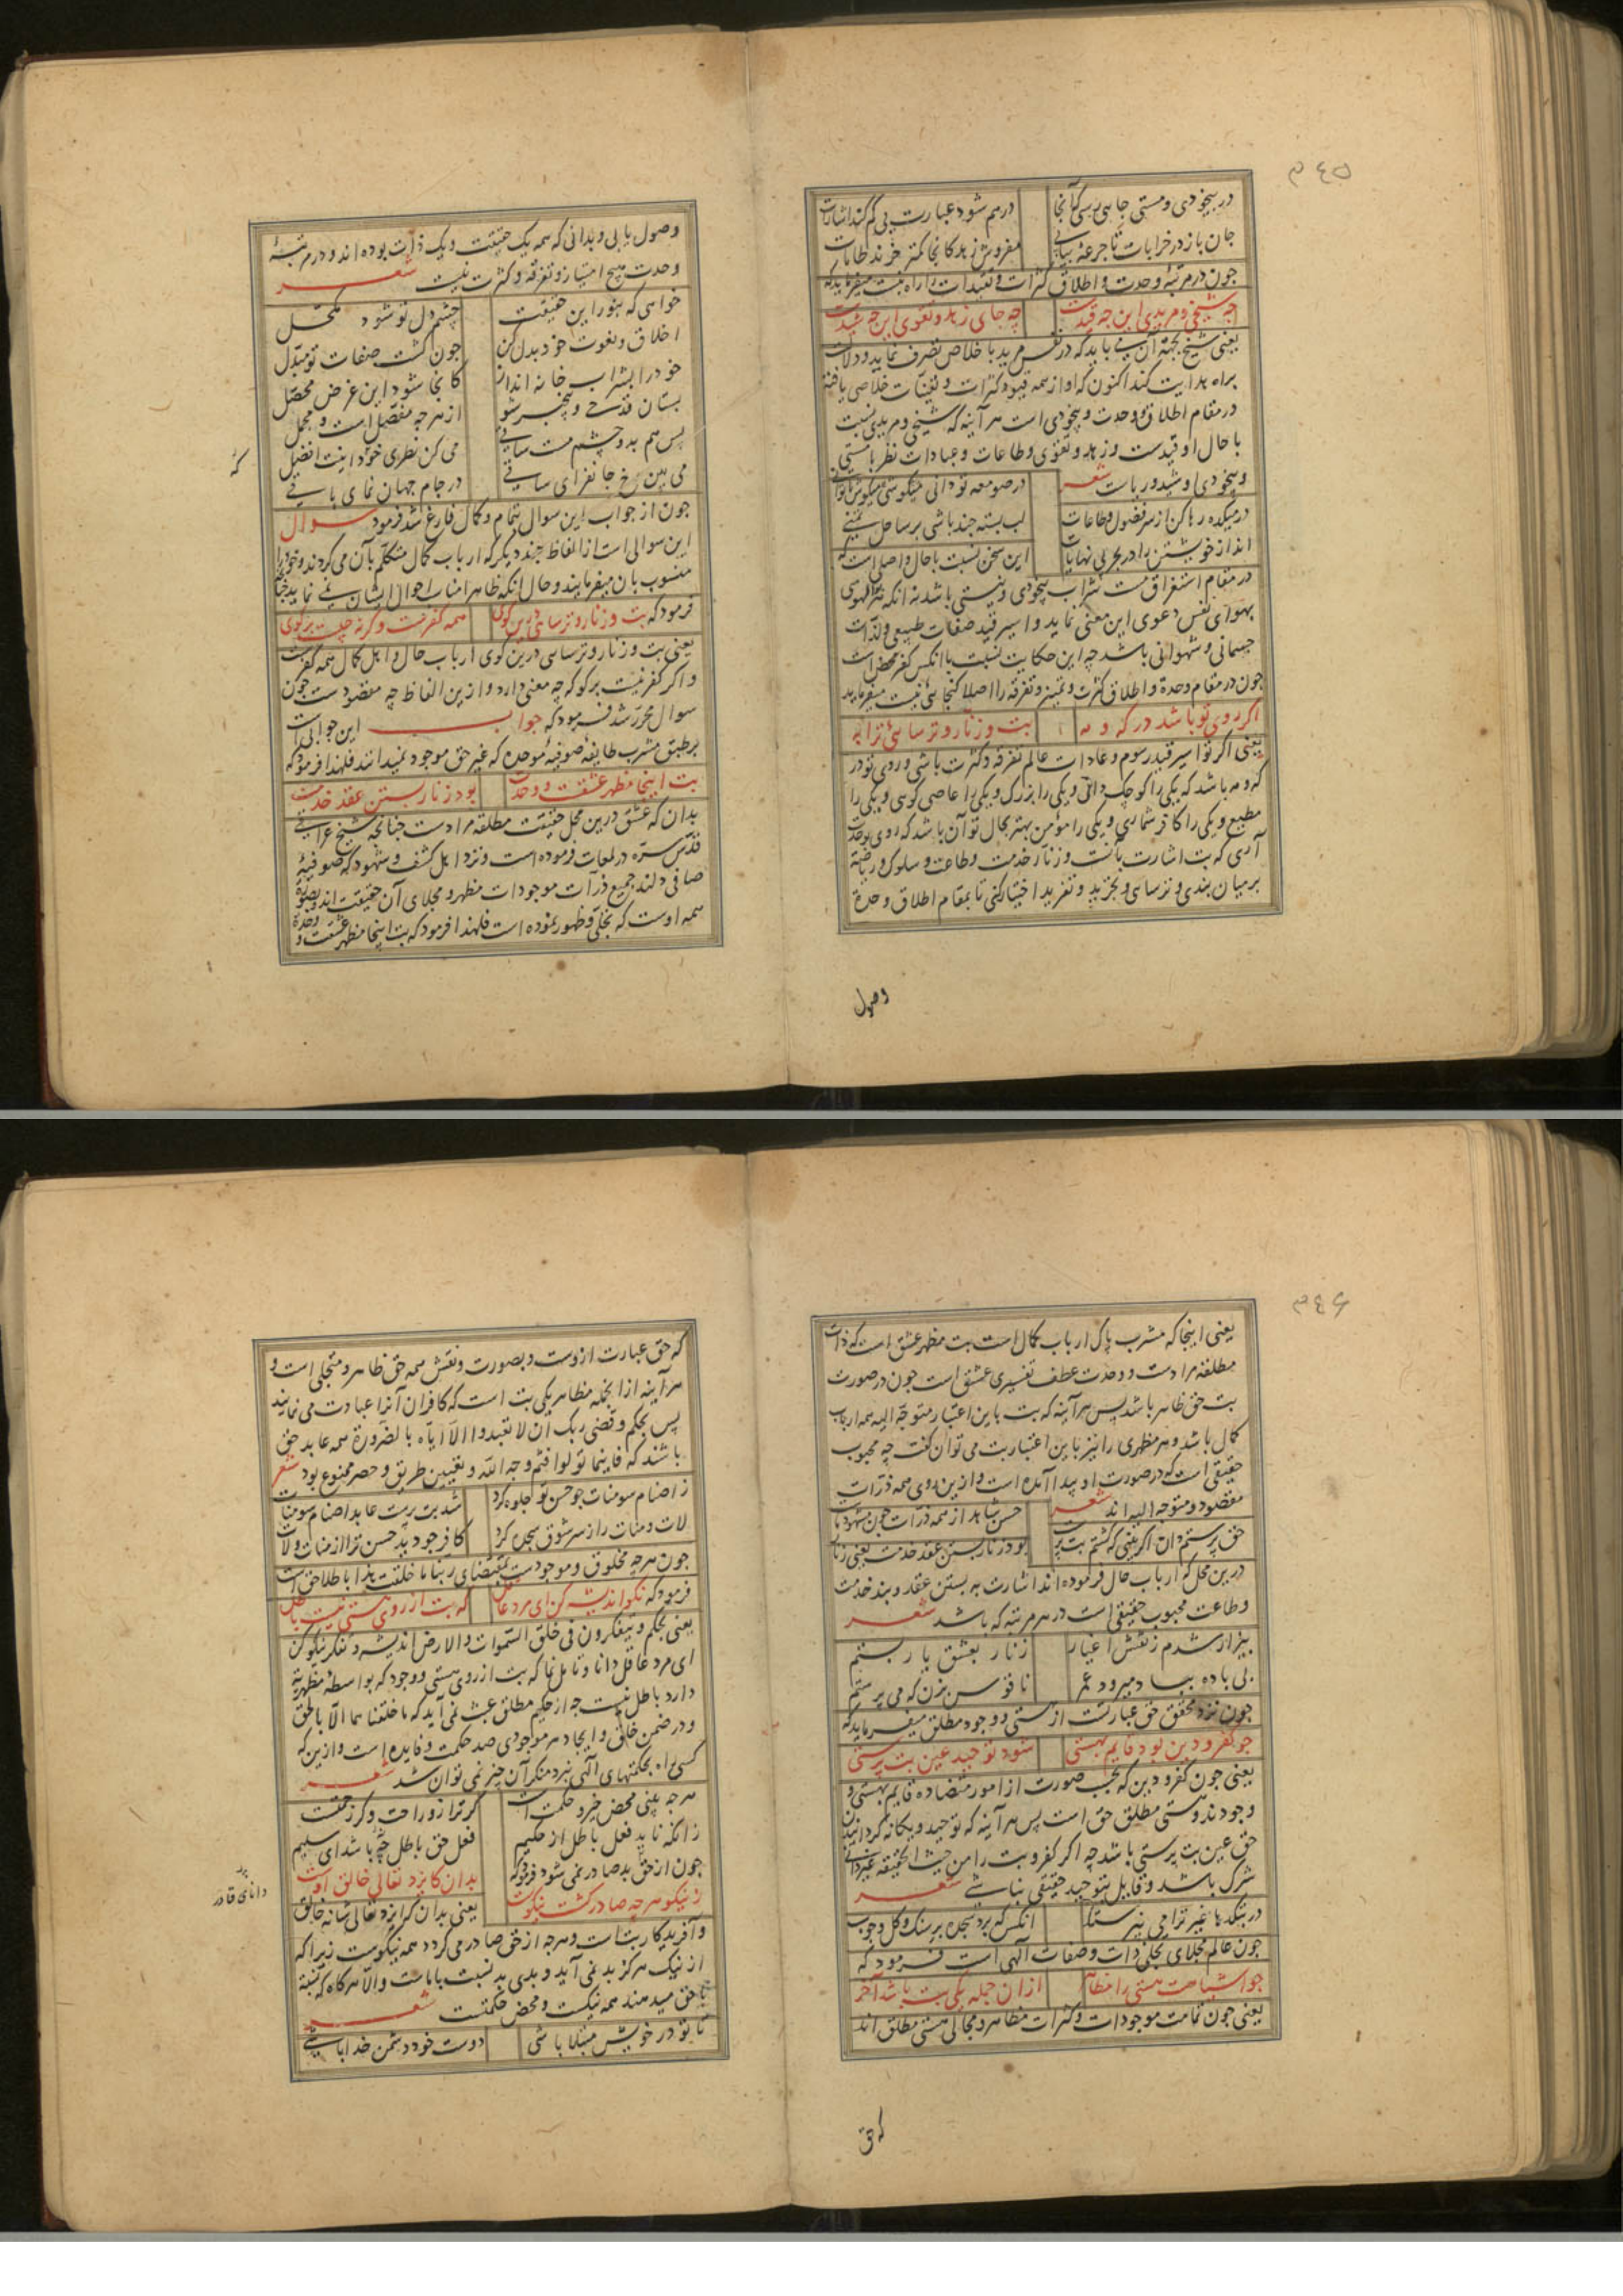 ۳۴۵
در بیخودی و مستی جایی رسی کآنجا درهم شود عبارت پی گم کند اشارت
جان باز در خرابات تا جرعه بیابی مفروش زهد کانجا کمتر خرند طامات
چون در مرتبه وحدت و اطلاق کثرات و تقیدات را راه نیست میفرماید که
چه شیخی و مریدی این چه قیدست چه جای زهد و تقوی این چه شیدست
یعنی شیخ بجهت آن می باید که در نفس مرید باخلاص تصرف نماید و دلالت
براه هدایت کند اکنون که او از همه قیود کثرات و تعینات خلاصی یافته
در مقام اطلاق و وحدت و بیخودی است هر آینه که شیخی و مریدی نسبت
با حال او قیدست و زهد و تقوی و طاعات و عبادات نظر با مستی
و بیخودی او شید و ریاست شعر در صومعه تو دانی میکوشی میکوش تا توانی
در میکده رها کن از سر فضول و طاعات لب بسته چند باشی بر ساحل تمنی
انداز خویشتن را در بحر بی نهایات این سخن نسبت با حال واصلی است که
در مقام استغراق مست شراب بیخودی و نیستی باشد نه آنکه
بهوای نفس دعوی این معنی نماید و اسیر قید صفات طبیعی و لذات
جسمانی و شهوانی باشد چه این حکایت نسبت با آنکس کفر محض است
چون در مقام وحدة و اطلاق کثرت و تمییز و تفرقه را اصلا گنجائی نیست میفرماید
اگر روی تو باشد در که و مه بت و زنار و ترسائی ترا به
یعنی اگر تو اسیر قید رسوم و عادات عالم تفرقه و کثرت باشی و روی تو در
که و مه باشد که یکی را کوچک دانی و یکی را بزرگ و یکی را عاصی گوئی و یکی را
مطیع و یکی را کافر شماری و یکی را مؤمن بهتر بحال تو آن باشد که روی بوحدت
آری که بت اشارت بآنست و زنار خدمت و طاعت و سلوک و ریاضت
بر میان بندی و ترسایی و تجرید و تفرید اختیار کنی تا بمقام اطلاق و وحدة
وصول
وصول یابی و بدانی که همه یک حقیقت و یک ذات بوده اند و در مرتبه
وحدت هیچ امتیاز و تفرقه و کثرت نیست شعر
خواهی که بنور این حقیقت چشم دل تو شود مکحل
اخلاق و نعوت خود بدل کن چون گشت صفات تو مبدل
خود را بشراب خانه انداز کانجا شود این غرض محصل
بستان قدحی و بیخبر شو از هرچه مفصل است و مجمل
پس هم بدو چشم مست ساقی می کن نظری خود اینت افضل
می بین رخ جانفزای ساقی در جام جهان نمای باقی
چون از جواب این سوال بتمام و کمال فارغ شد فرمود سوال
این سوالی است از الفاظ چند دیگر که ارباب کمال متکلم بآن می گردند و خود را
منسوب بان میفرمایند و حال آنکه ظاهرا مناسب احوال ایشان نمی نماید چنانچه
فرمود که بت و زنار و ترسایی درین کوی همه کفرست و گرنه چیست برگوی
یعنی بت و زنار و ترسایی درین کوی ارباب حال و اهل کمال همه کفرست
و اگر کفر نیست برگو که چه معنی دارد و ازین الفاظ چه مقصودست چون
سوال محرر شد فرمود که جواب این جوابی است
بر طبق مشرب طایفه صوفیه موحده که غیر حق موجود نمیدانند فلهذا فرمود که
بت اینجا مظهر عشقست و وحدت بود زنار بستن عقد خدمت
بدان که عشق درین محل حقیقت مطلقه مرادست چنانچه شیخ عراقی
قدس سره در لمعات فرموده است و نزد اهل کشف و شهود که صوفیه
صافی دلند جمیع ذرات موجودات مظهر و مجلای آن حقیقت اند و بصورة
همه اوست که تجلی و ظهور نموده است فلهذا فرمود که بت اینجا مظهر عشقست و وحدة
۳۴۶
یعنی اینجا که مشرب پاک ارباب کمال است بت مظهر عشق است که ذات
مطلقه مرادست و وحدت عطف تفسیری عشق است چون در صورت
بت حق ظاهر باشد پس هرآینه که بت باین اعتبار متوجه الیه همه ارباب
کمال باشد و هر مظهری را نیز باین اعتبار بت می توان گفت چه محبوب
حقیقی است که در صورت او پیدا آمده است و ازین روی همه ذرات
مقصود و متوجه الیه اند شعر حسن شاهد از همه ذرات چون مشهود ما
حق پرستم دان اگر بینی که گشتم بت پرست بود زنار بستن عقد خدمت یعنی زنار
درین محل که ارباب حال فرموده اند اشارت به بستن عقد و بند خدمت
و طاعت محبوب حقیقی است در هر مرتبه که باشد شعر
بیزار شدم ز نقش اغیار زنار بعشق یار بستم
بی باده بیا دمیرود عمر ناقوس بزن که می پرستم
چون نزد محقق حق عبارتست از هستی و وجود مطلق میفرماید که
چو کفر و دین بود قایم بهستی شود توحید عین بت پرستی
یعنی چون کفر و دین که بحسب صورت از امور متضاده قایم بهستی و
وجودند و هستی مطلق حق است پس هرآینه که توحید و یگانه گردانیدن
حق عین بت پرستی باشد چه اگر کفر و بت را من حیث الحقیقه غیر دانی
شرک باشد و قایل بتوحید حقیقی نباشی شعر
در بتکدها غیر ترا می نپرستند آنکس که برد سجده بر سنگ و گل و چوب
چون عالم مجلای تجلی ذات و صفات الهی است فرمود که
چو اشیا هست هستی را مظاهر از آن جمله یکی بت باشد آخر
یعنی چون تمامت موجودات و کثرات مظاهر و مجالی هستی مطلق اند
که حق
که حق عبارت ازوست و بصورت و نقش همه حق ظاهر و متجلی است و
هرآینه از آنجمله مظاهر یکی بت است که کافران آنرا عبادت می نمایند
پس بحکم و قضی ربک ان لا تعبدوا الا ایاه بالضرورة همه عابد حق
باشند که فاینما تولوا فثم وجه الله و تعیین طریق و حصر ممنوع بود شعر
ز اصنام سومنات چو حسن تو جلوه کرد شد بت پرست عابد اصنام سومنات
لات و منات را ز سر شوق سجده کرد کافر چو دید حسن ترا از منات و لات
چون هرچه مخلوق و موجودست بمقتضای ربنا ما خلقت هذا باطلا حق است
فرمود که نکو اندیشه کن ای مرد عاقل که بت از روی هستی نیست باطل
یعنی بحکم و یتفکرون فی خلق السموات والارض اندیشه و تفکر نیکو کن
ای مرد عاقل دانا و تامل نما که بت از روی هستی و وجود که بواسطه مظهریة
دارد باطل نیست چه از حکیم مطلق عبث نمی آید که ما خلقناهما الا بالحق
و در ضمن خلق و ایجاد هر موجودی صد حکمت و فایده است و ازین که
کسی راه بحکمتهای الهی نبرد منکر آن چیز نمی توان شد شعر
هرچه بینی محض خیر و حکمت است گر ترا زو راحت و گر زحمتست
زانکه ناید فعل باطل از حکیم فعل حق باطل چه باشد ای سلیم
چون از حق بد صادر نمی شود فرمود که بدان کایزد تعالی خالق اوست
ز نیکو هرچه صادر گشت نیکوست یعنی بدان که ایزد تعالی شانه خالق
و آفریدگار بت است و هرچه از حق صادر می گردد همه نیکوست زیرا که
از نیک هرگز بد نمی آید و بدی بد نسبت بماست والا هرگاه که نسبة
با حق میدهند همه نیکست و محض حکمتست شعر
تا تو در خویش مبتلا باشی دوست خود دشمن خدا باشی
دانای قادر